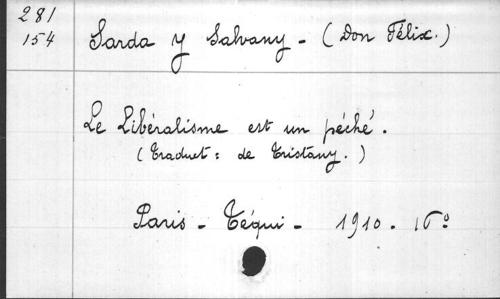 281
154
Sarda y Salvany - (Don Félix.)
Le Libéralisme est un péché.
(Traduct: de Tristany.)
Paris - Téqui - 1910. 16°